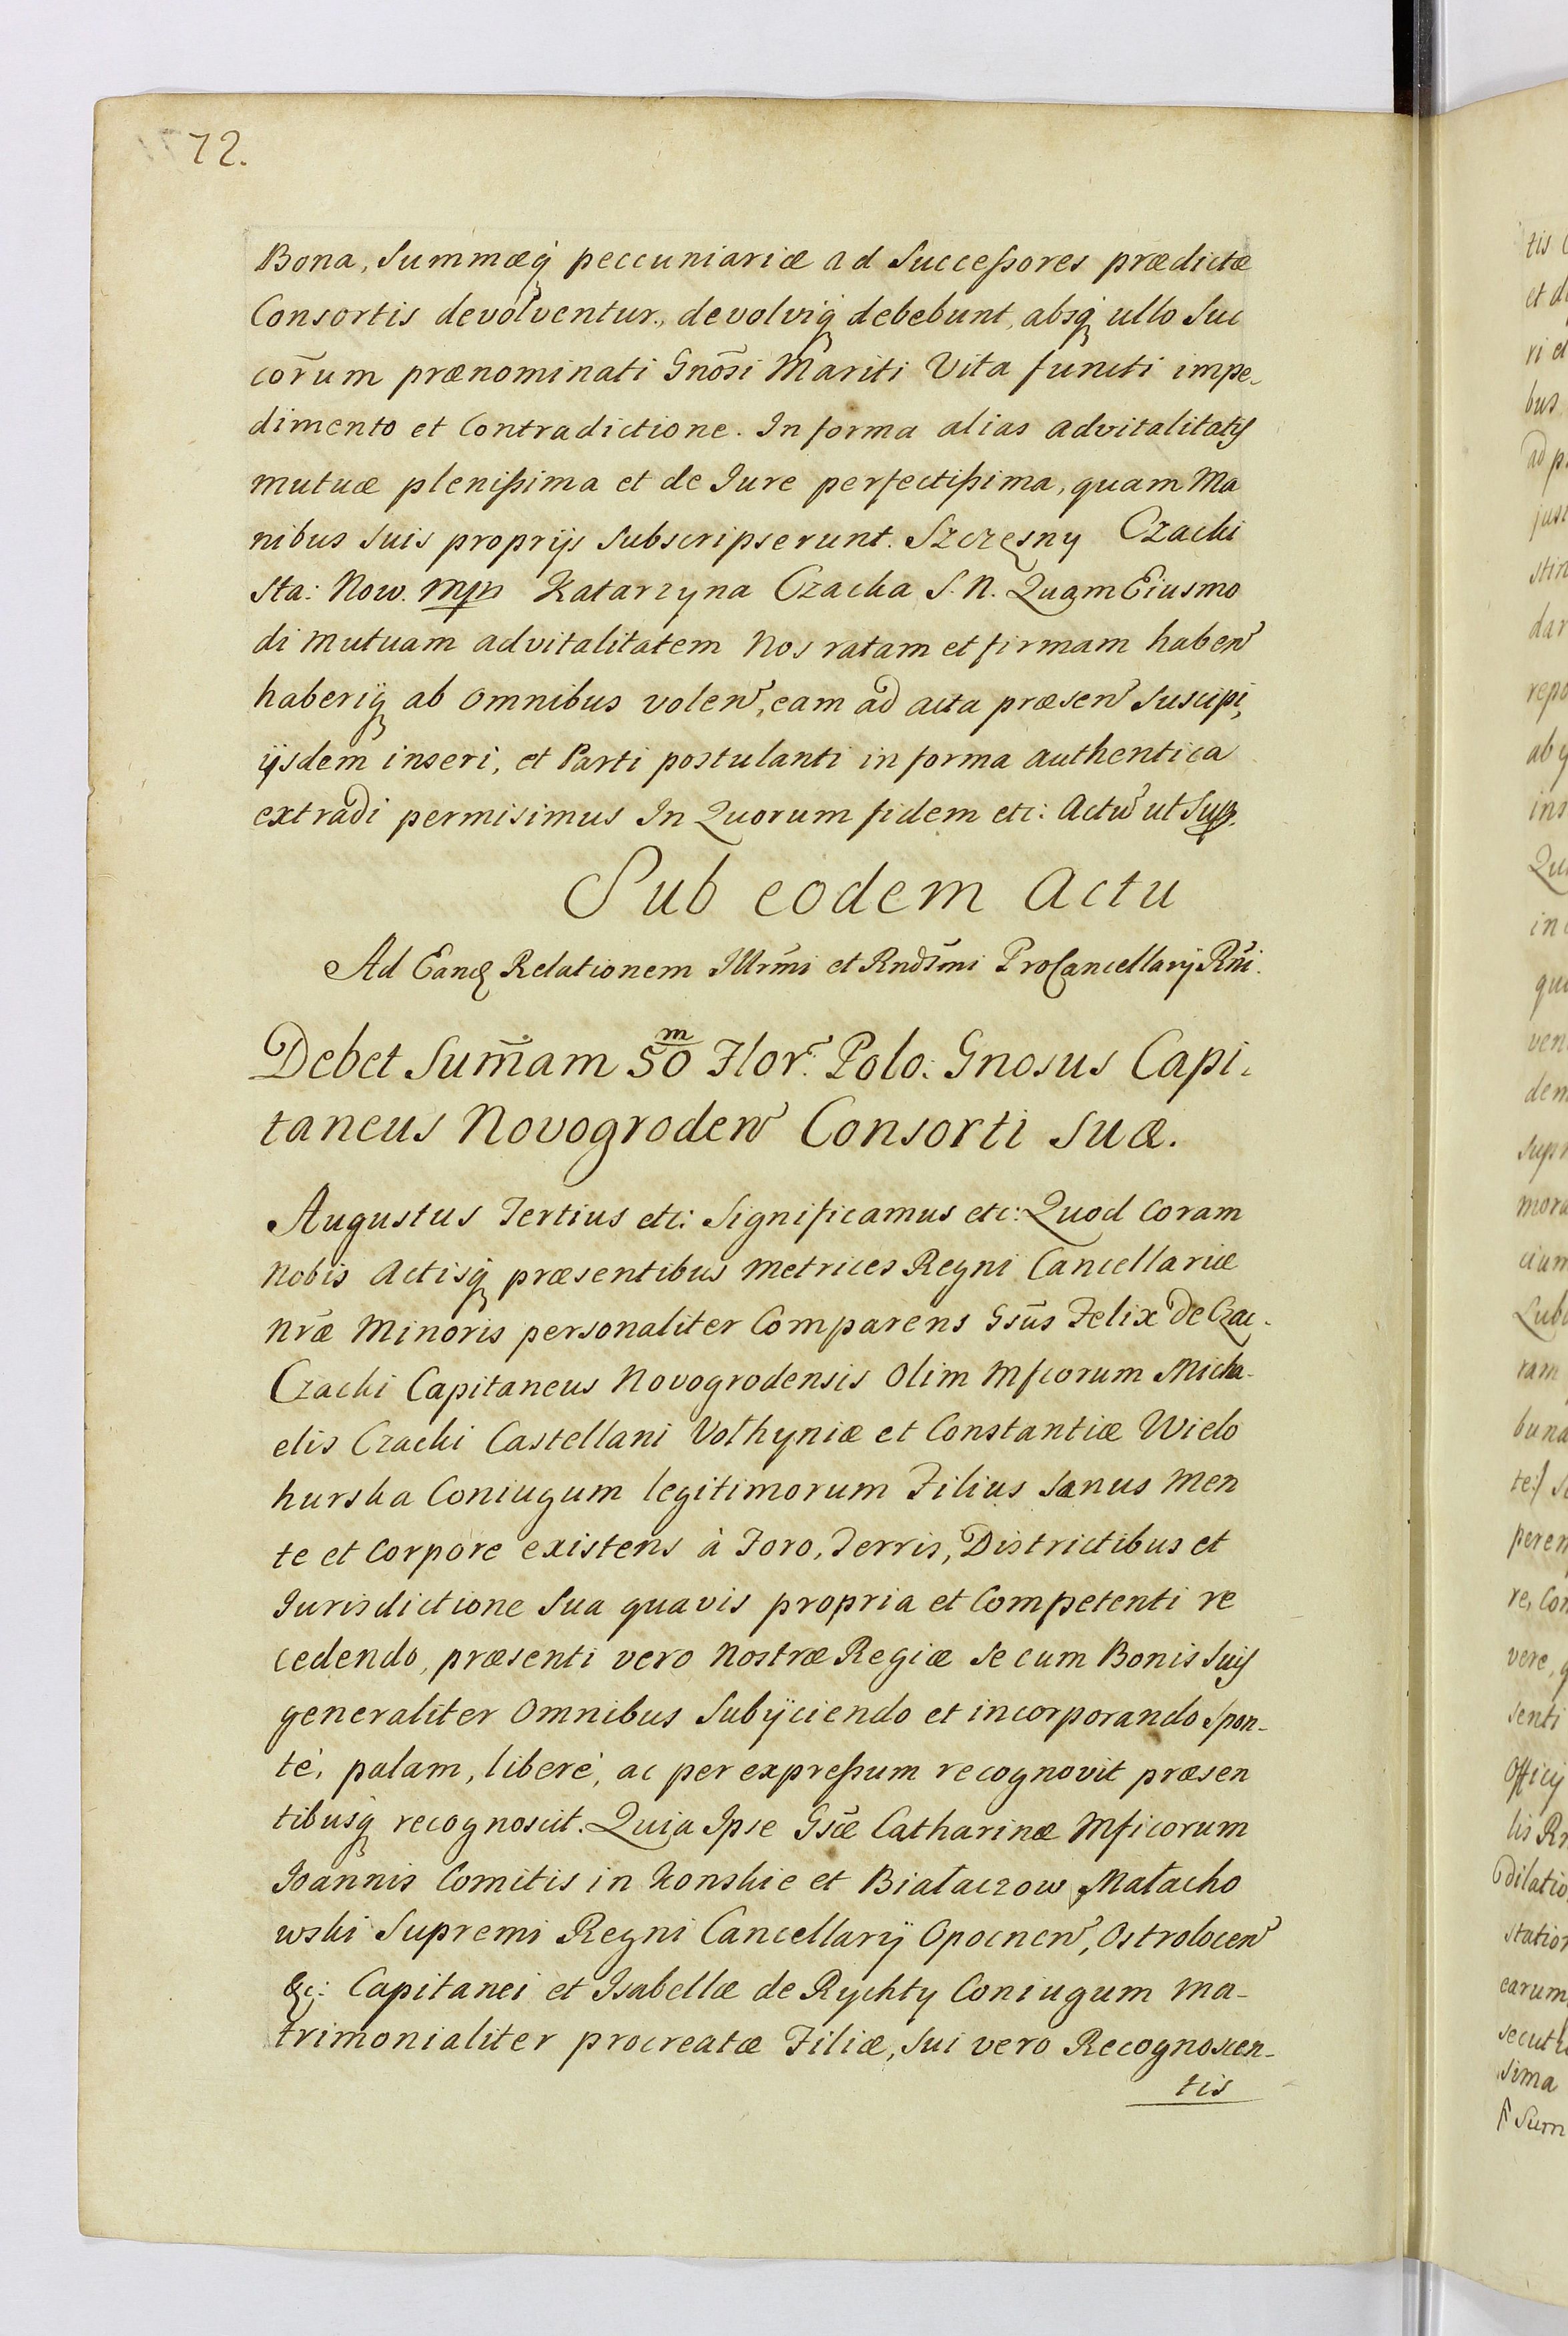 72.
Bona, Summæq́ peccuniariæ ad Succeſsores prædictæ
Consortis devolventur., devolviq́ debebunt, absq́ ullo Suc
cōrum prænominati Gnōsi Mariti Vita functi impe-
dimento et Contradictione. In forma alias advitalitatis
mutuæ pleniſsima et de Iure perfectiſsima, quam Ma
nibus Suis proprijs Subscripserunt. Szczęsny Czacki
Sta: Now. mpp Katarzyna Czacka S. N. Quam Eiusmo
di Mutuam advitalitatem Nos ratam et firmam haben̄
haberiq́ ab omnibus volen̄, eam ad acta præsen̄ Suscipi,
ijsdem inseri, et Parti postulanti in forma authentica
extradi permisimus In Quorum fidem etc: Actū ut Sup.
Sub eodem Actu
Ad Eandē Relationem Illrmī et Rndsmī ProCancellarij Rnī.
Debet Sum̄am 50 m Flor. Polo: Gnosus Capi-
taneus Novogroden̄ Consorti Suæ.
Augustus Tertius etc: Significamus etc: Quod Coram
Nobis Actisq́ præsentibus Metrices Regni Cancellariæ
Nrǣ Minoris personaliter Comparens Gsūs Felix De Czac-
Czacki Capitaneus Novogrodensis Olim Mfcorum Micha-
elis Czacki Castellani Vołhyniæ et Constantiæ Wielo
hurska Coniugum legitimorum Filius Sanus Men
te et Corpore existens à Foro, Terris, Districtibus et
Iurisdictione Sua quavis propria et Competenti re
cedendo, præsenti vero Nostræ Regiæ Se cum Bonis Suis
generaliter Omnibus Subijciendo et incorporando Spon-
tè, palam, liberè, ac per expreſsum recognovit præsen
tibusq́ recognoscit. Quia Ipse Gsǣ Catharinæ Mficorum
Ioannis Comitis in Konskie et Białaczow Małacho
wski Supremi Regni Cancellarij Opocnen̄, Ostrolocen̄
&c: Capitanei et Isabellæ de Rychty Coniugum Ma-
trimonialiter procreatæ Filiæ, Sui vero Recognoscen-
tis